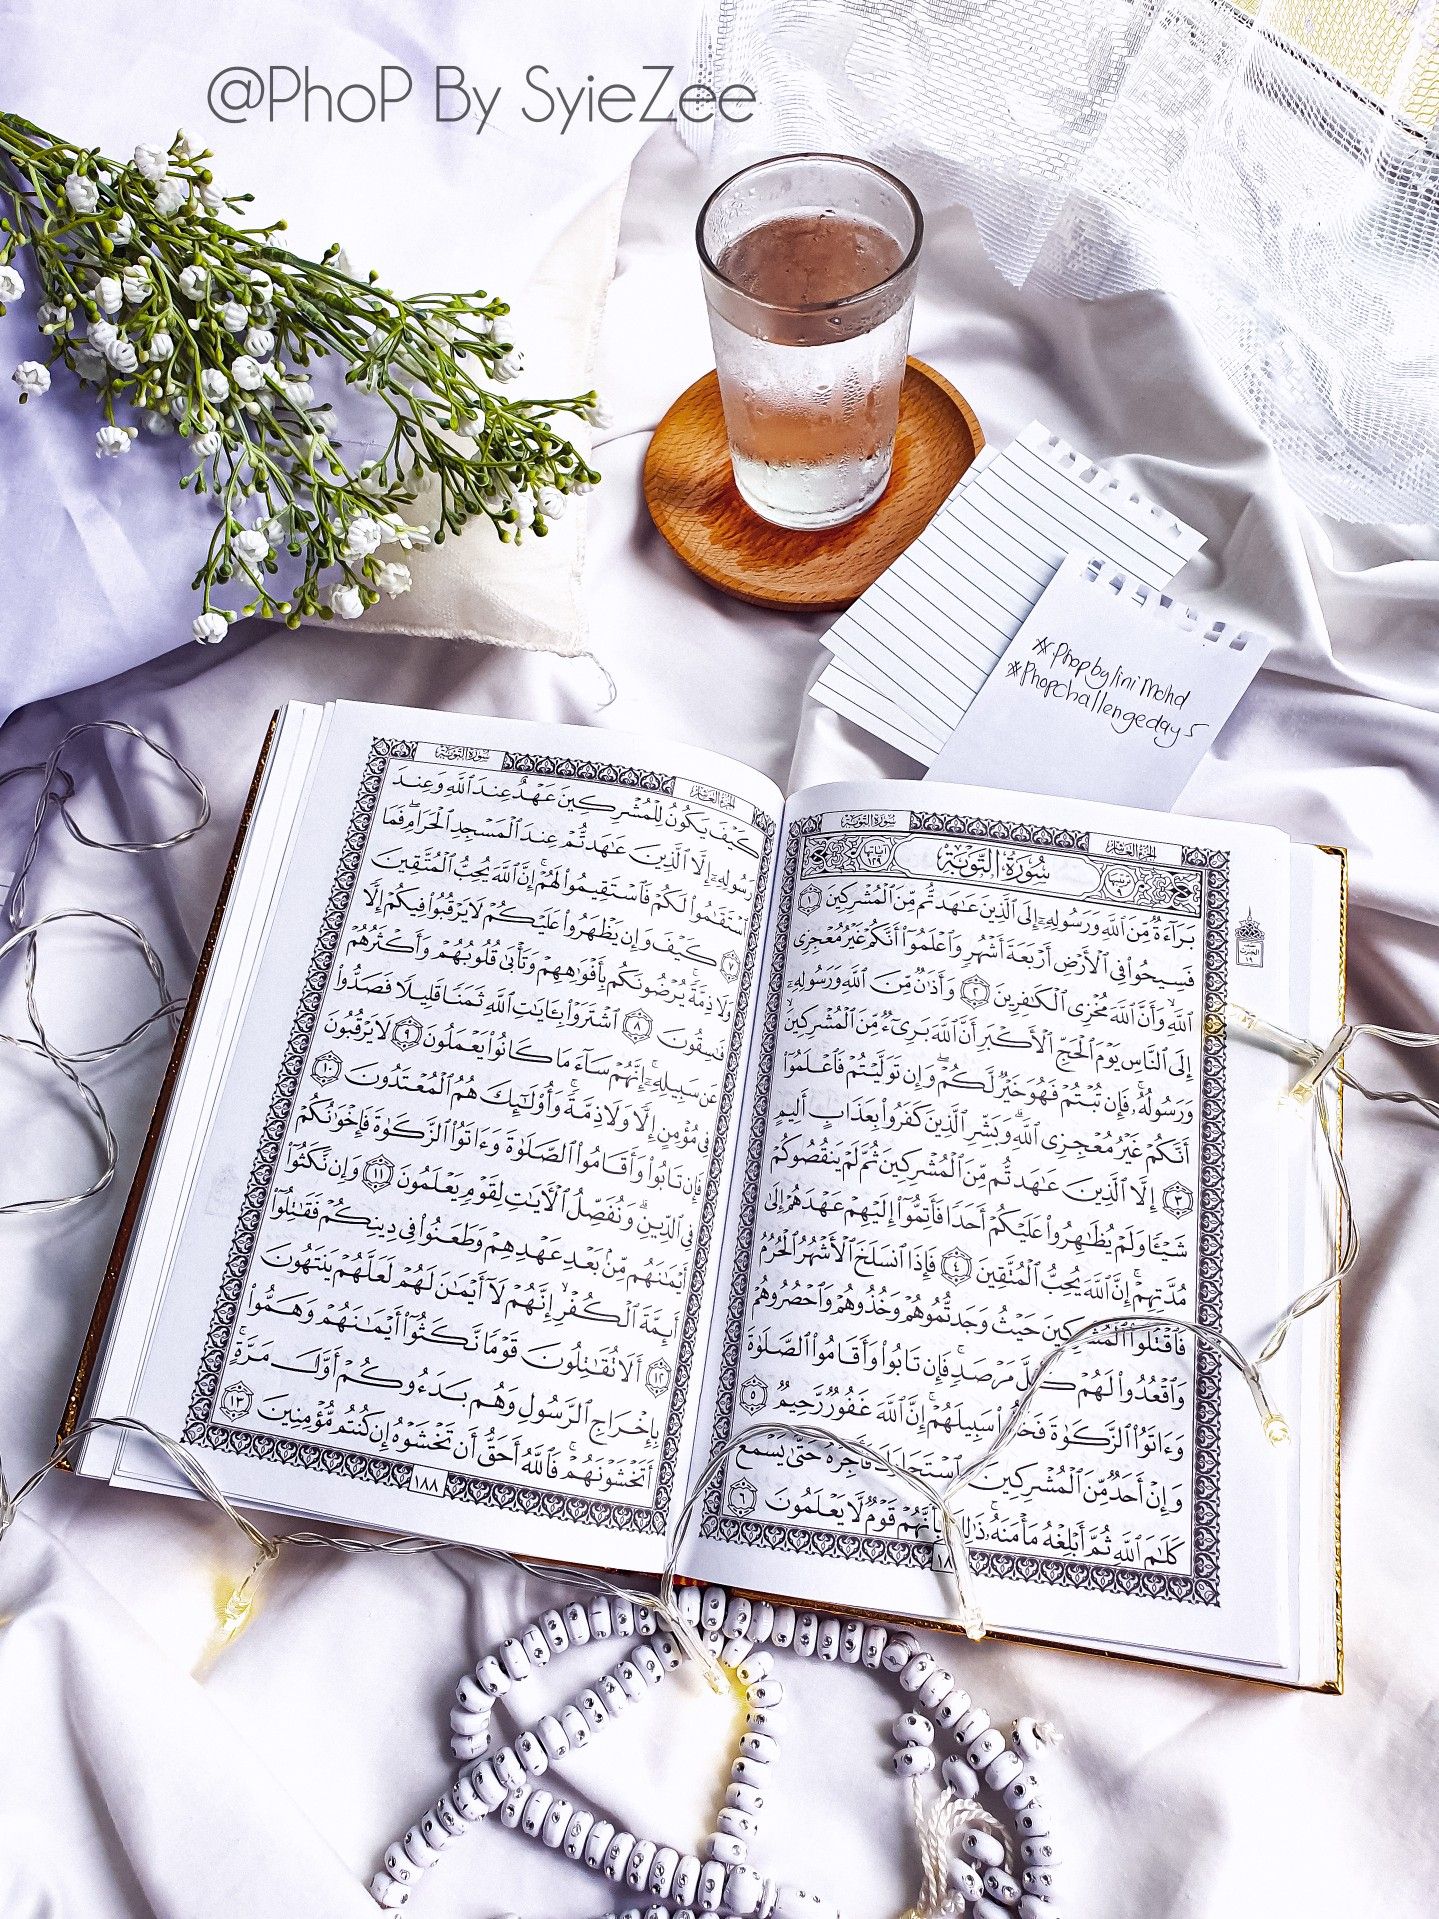 @PhoP By SyieZee
#Phopbylini Mohd
#Phopchallengeday5
سُورَةُ التَّوْبَةِ
الجزء العاشر
سُورَةُ التَّوْبَةِ
آياتها ١٢٩
بَرَآءَةٌ مِّنَ ٱللَّهِ وَرَسُولِهِۦٓ إِلَى ٱلَّذِينَ عَـٰهَدتُّم مِّنَ ٱلْمُشْرِكِينَ ١
فَسِيحُوا۟ فِى ٱلْأَرْضِ أَرْبَعَةَ أَشْهُرٍ وَٱعْلَمُوٓا۟ أَنَّكُمْ غَيْرُ مُعْجِزِى
ٱللَّهِ ۙ وَأَنَّ ٱللَّهَ مُخْزِى ٱلْكَـٰفِرِينَ ٢ وَأَذَٰنٌ مِّنَ ٱللَّهِ وَرَسُولِهِۦٓ
إِلَى ٱلنَّاسِ يَوْمَ ٱلْحَجِّ ٱلْأَكْبَرِ أَنَّ ٱللَّهَ بَرِىٓءٌ مِّنَ ٱلْمُشْرِكِينَ ۙ
وَرَسُولُهُۥ ۚ فَإِن تُبْتُمْ فَهُوَ خَيْرٌ لَّكُمْ ۖ وَإِن تَوَلَّيْتُمْ فَٱعْلَمُوٓا۟
أَنَّكُمْ غَيْرُ مُعْجِزِى ٱللَّهِ ۗ وَبَشِّرِ ٱلَّذِينَ كَفَرُوا۟ بِعَذَابٍ أَلِيمٍ
٣ إِلَّا ٱلَّذِينَ عَـٰهَدتُّم مِّنَ ٱلْمُشْرِكِينَ ثُمَّ لَمْ يَنقُصُوكُمْ
شَيْـًٔا وَلَمْ يُظَـٰهِرُوا۟ عَلَيْكُمْ أَحَدًا فَأَتِمُّوٓا۟ إِلَيْهِمْ عَهْدَهُمْ إِلَىٰ
مُدَّتِهِمْ ۚ إِنَّ ٱللَّهَ يُحِبُّ ٱلْمُتَّقِينَ ٤ فَإِذَا ٱنسَلَخَ ٱلْأَشْهُرُ ٱلْحُرُمُ
فَٱقْتُلُوا۟ ٱلْمُشْرِكِينَ حَيْثُ وَجَدتُّمُوهُمْ وَخُذُوهُمْ وَٱحْصُرُوهُمْ
وَٱقْعُدُوا۟ لَهُمْ كُلَّ مَرْصَدٍ ۚ فَإِن تَابُوا۟ وَأَقَامُوا۟ ٱلصَّلَوٰةَ
وَءَاتَوُا۟ ٱلزَّكَوٰةَ فَخَلُّوا۟ سَبِيلَهُمْ ۚ إِنَّ ٱللَّهَ غَفُورٌ رَّحِيمٌ ٥
وَإِنْ أَحَدٌ مِّنَ ٱلْمُشْرِكِينَ ٱسْتَجَارَكَ فَأَجِرْهُ حَتَّىٰ يَسْمَعَ
كَلَـٰمَ ٱللَّهِ ثُمَّ أَبْلِغْهُ مَأْمَنَهُۥ ۚ ذَٰلِكَ بِأَنَّهُمْ قَوْمٌ لَّا يَعْلَمُونَ ٦
سُورَةُ التَّوْبَةِ
الجزء العاشر
كَيْفَ يَكُونُ لِلْمُشْرِكِينَ عَهْدٌ عِندَ ٱللَّهِ وَعِندَ
رَسُولِهِۦٓ إِلَّا ٱلَّذِينَ عَـٰهَدتُّمْ عِندَ ٱلْمَسْجِدِ ٱلْحَرَامِ ۖ فَمَا
ٱسْتَقَـٰمُوا۟ لَكُمْ فَٱسْتَقِيمُوا۟ لَهُمْ ۚ إِنَّ ٱللَّهَ يُحِبُّ ٱلْمُتَّقِينَ
٧ كَيْفَ وَإِن يَظْهَرُوا۟ عَلَيْكُمْ لَا يَرْقُبُوا۟ فِيكُمْ إِلًّا
وَلَا ذِمَّةً ۚ يُرْضُونَكُم بِأَفْوَٰهِهِمْ وَتَأْبَىٰ قُلُوبُهُمْ وَأَكْثَرُهُمْ
فَـٰسِقُونَ ٨ ٱشْتَرَوْا۟ بِـَٔايَـٰتِ ٱللَّهِ ثَمَنًا قَلِيلًا فَصَدُّوا۟
عَن سَبِيلِهِۦٓ ۚ إِنَّهُمْ سَآءَ مَا كَانُوا۟ يَعْمَلُونَ ٩ لَا يَرْقُبُونَ
فِى مُؤْمِنٍ إِلًّا وَلَا ذِمَّةً ۚ وَأُو۟لَـٰٓئِكَ هُمُ ٱلْمُعْتَدُونَ ١٠
فَإِن تَابُوا۟ وَأَقَامُوا۟ ٱلصَّلَوٰةَ وَءَاتَوُا۟ ٱلزَّكَوٰةَ فَإِخْوَٰنُكُمْ
فِى ٱلدِّينِ ۗ وَنُفَصِّلُ ٱلْـَٔايَـٰتِ لِقَوْمٍ يَعْلَمُونَ ١١ وَإِن نَّكَثُوٓا۟
أَيْمَـٰنَهُم مِّنۢ بَعْدِ عَهْدِهِمْ وَطَعَنُوا۟ فِى دِينِكُمْ فَقَـٰتِلُوٓا۟
أَئِمَّةَ ٱلْكُفْرِ ۙ إِنَّهُمْ لَآ أَيْمَـٰنَ لَهُمْ لَعَلَّهُمْ يَنتَهُونَ
١٢ أَلَا تُقَـٰتِلُونَ قَوْمًا نَّكَثُوٓا۟ أَيْمَـٰنَهُمْ وَهَمُّوا۟
بِإِخْرَاجِ ٱلرَّسُولِ وَهُم بَدَءُوكُمْ أَوَّلَ مَرَّةٍ ۚ
أَتَخْشَوْنَهُمْ ۚ فَٱللَّهُ أَحَقُّ أَن تَخْشَوْهُ إِن كُنتُم مُّؤْمِنِينَ ١٣
١٨٨